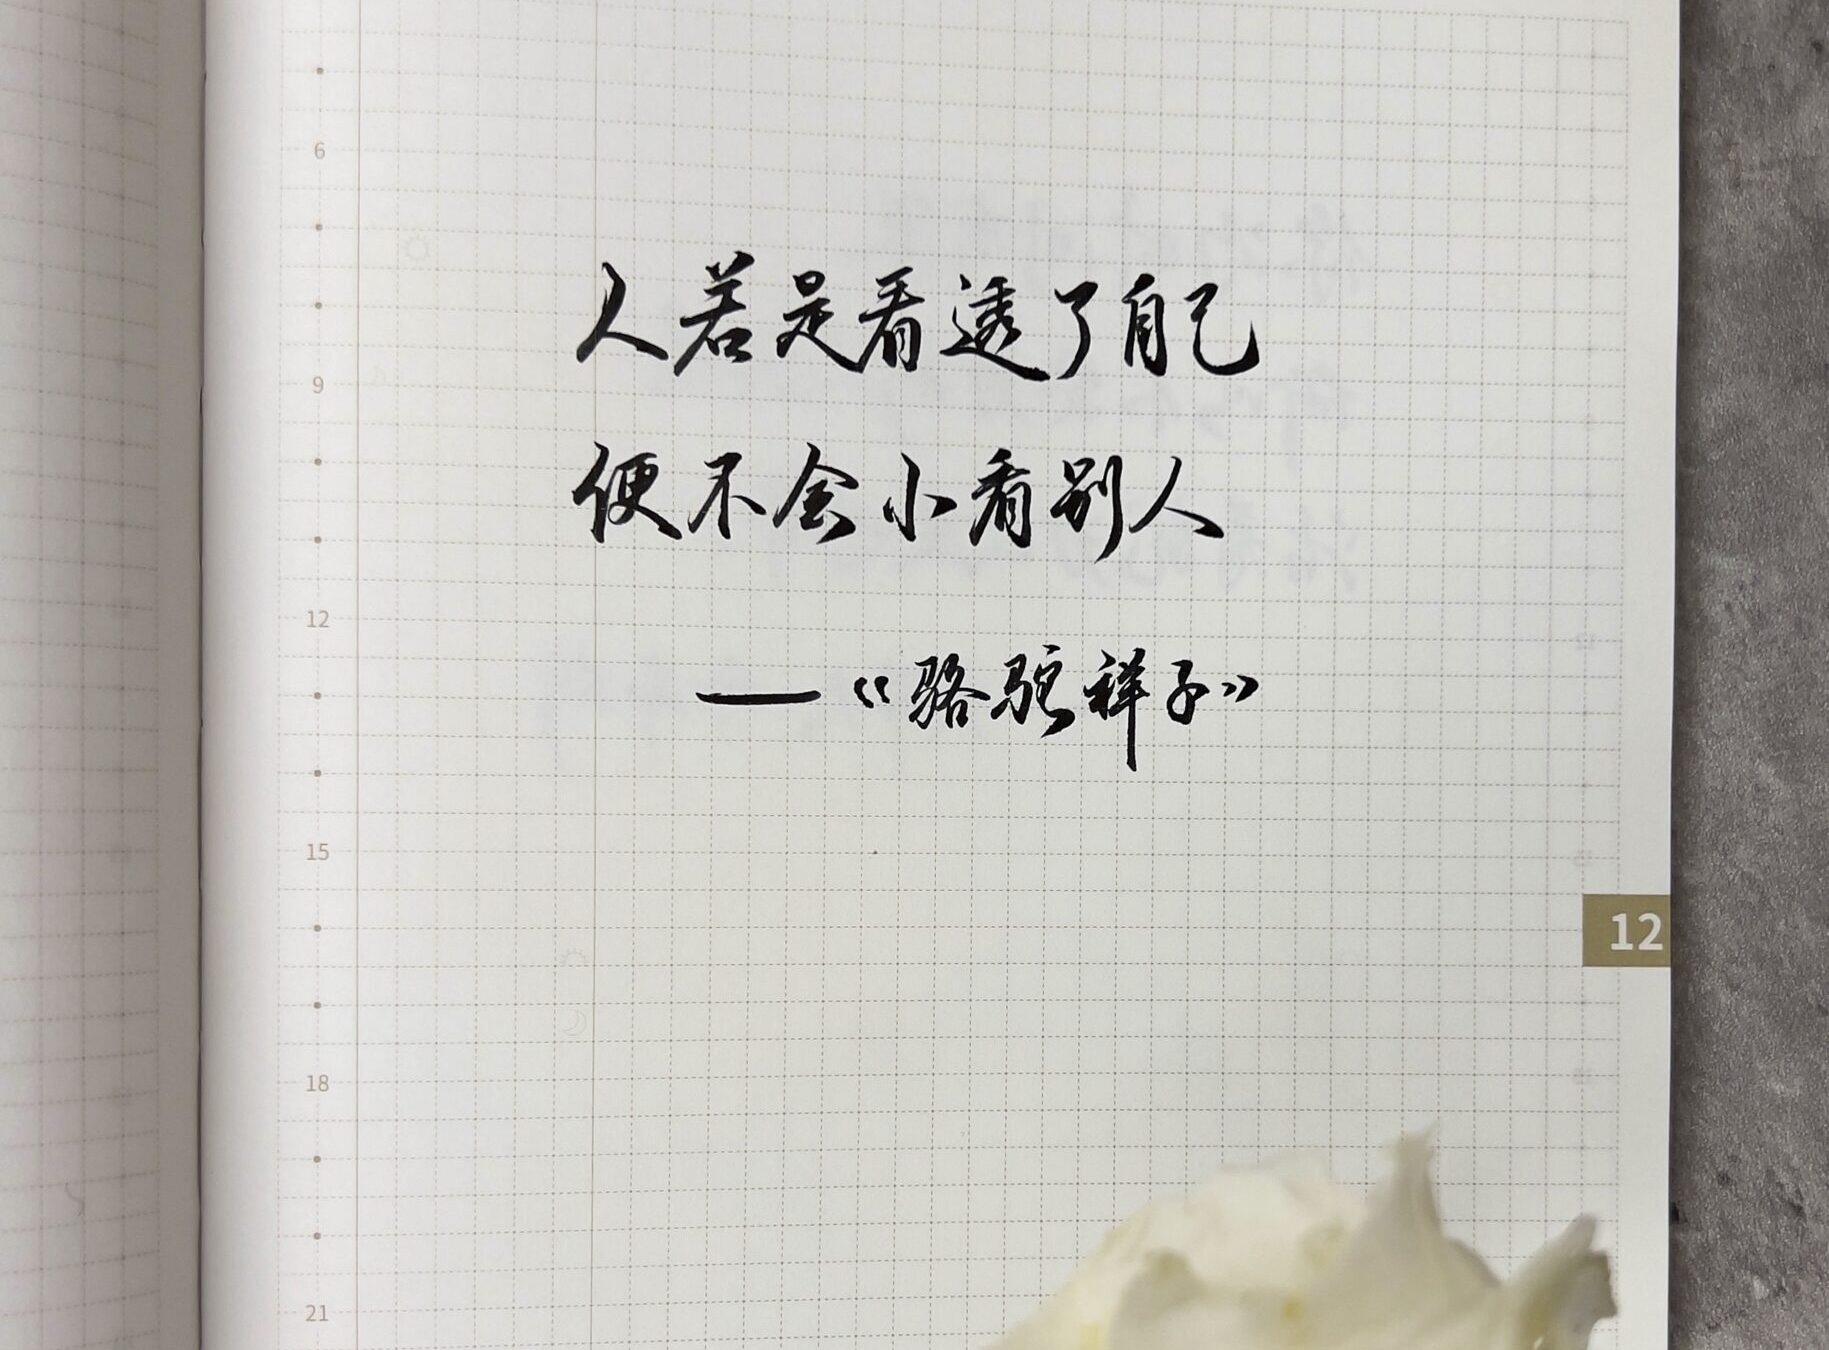 6
人若是看透了自己
9
便不会小看别人
12
—《骆驼祥子》
15
12
18
21